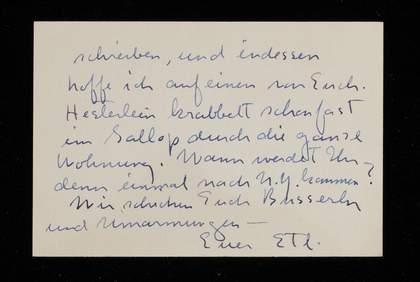 schreiben, und indessen
hoffe ich auf einen von Euch.
Hesterlein krabbelt schon fast
im Gallop durch die ganze
Wohnung. Wann werdet Ihr
denn einmal nach N.Y. kommen?
Wir schicken Euch Busserln
und Umarmungen —
Euer Etl.